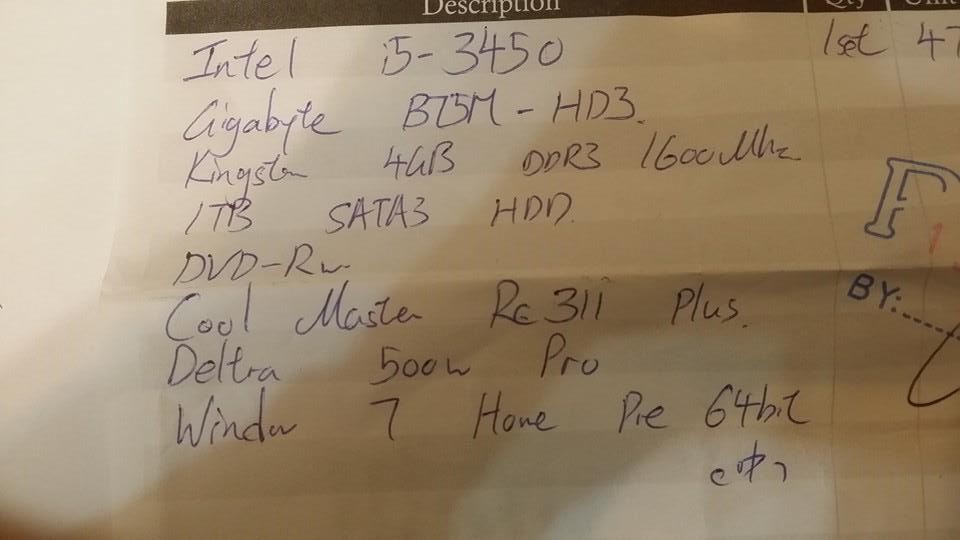 Description Qty Unit
Intel i5-3450 1set 47
Gigabyte B75M-HD3.
Kingston 4GB DDR3 1600Mhz
1TB SATA3 HDD.
DVD-Rw
Cool Master Rc 311 Plus.
BY:
Deltra 500w Pro
Window 7 Home Pre 64bit